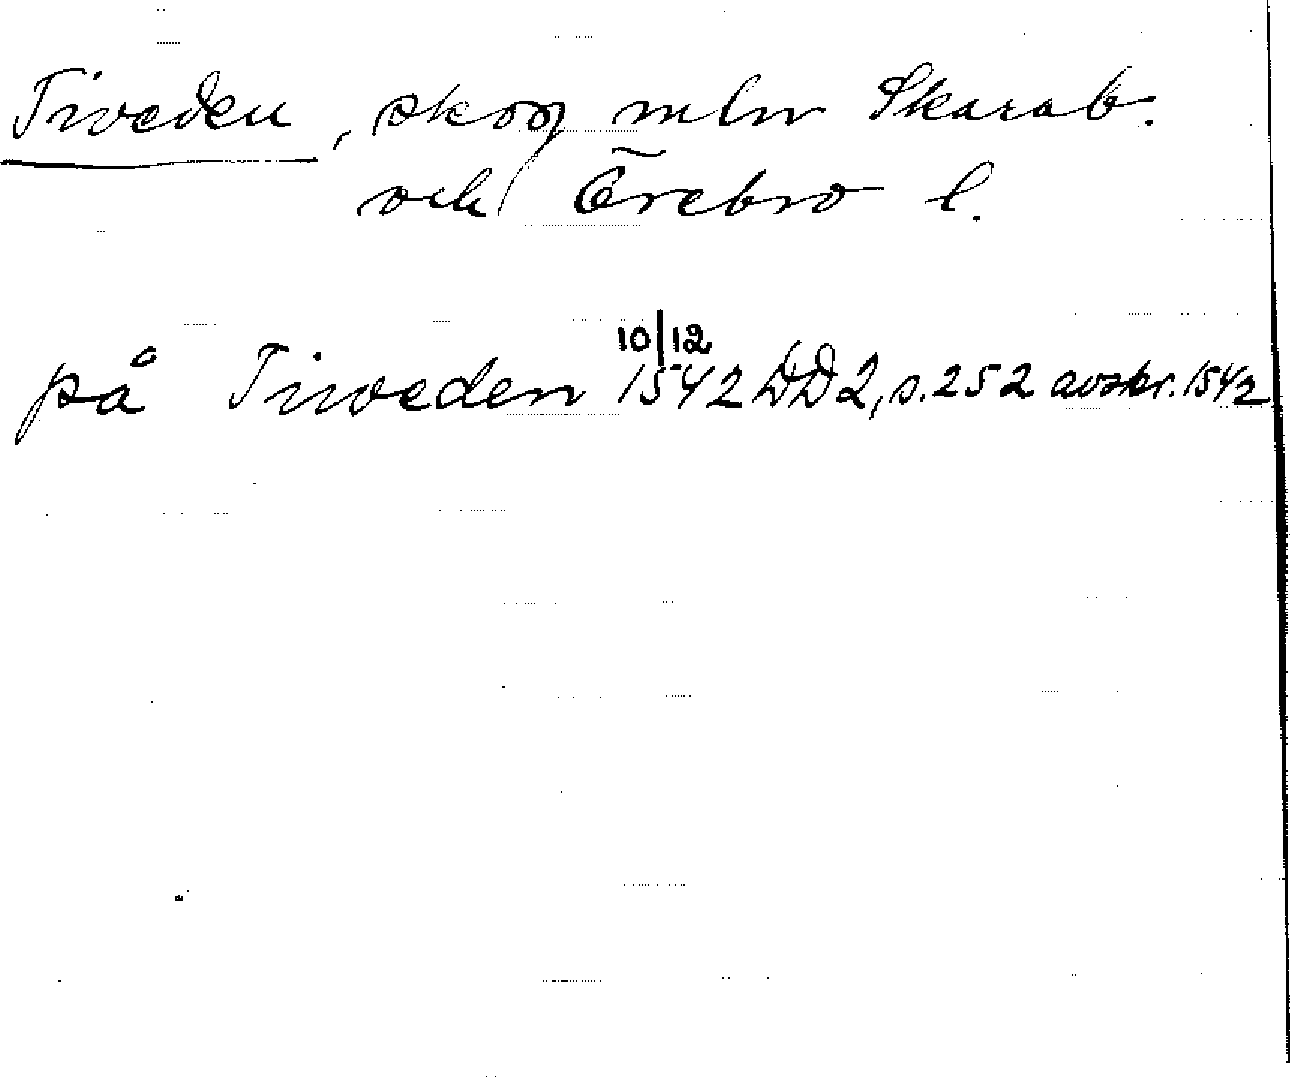 Tiveden, skog mln Skarab.
och Örebro l.
på Tiweden 10/12 1542 DD2, s. 252 avskr. 1542